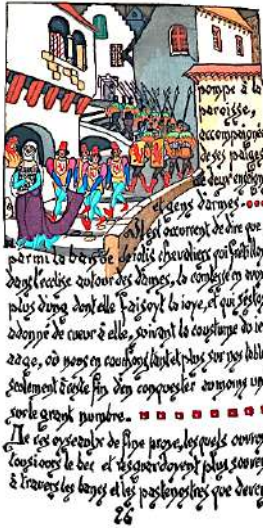 pompe à la
paroisse,
accompaignée
de ses paiges
de deux enseign
et gens darmes.
est occurrent de dire que
parmi la bande de iolis chevaliers qui fretilloy
dans lecclise autour des dames, la comtesse en avoyt
plus dung dont elle faisoyt la ioye, et qui sestoyt
adonné de cueur à elle, suivant la coustume du ieune
aage, où nous en couchons tant et plus sur nos tabl
seulement à ceste fin den conquester au moins un
sur le grant numbre.
De ces oyseaulx de fine proye, lesquels ouvroy
tousiours le bec et resguardoyent plus souvent
à travers les bancs et les pastenostres que devers
26